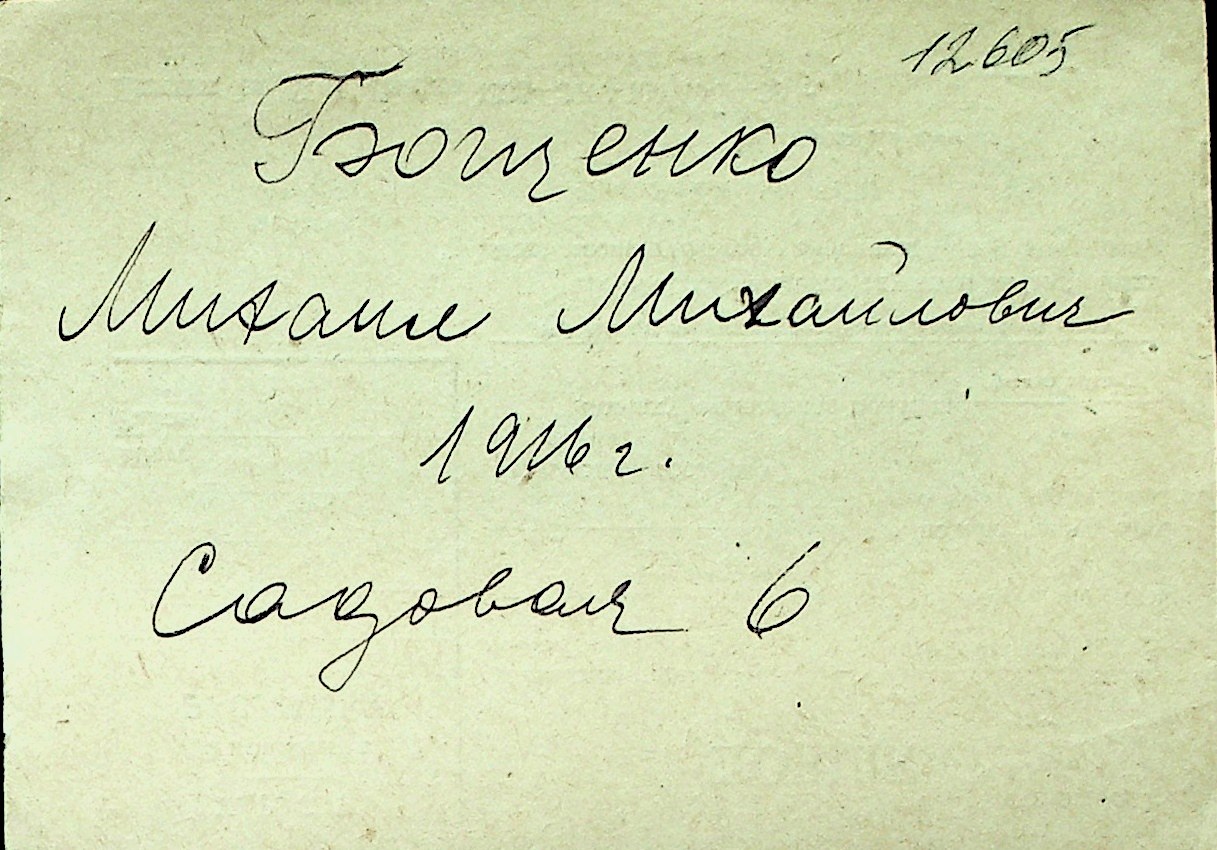 12605
Бощенко
Михаил Михайлович
1916 г.
Садовая 6